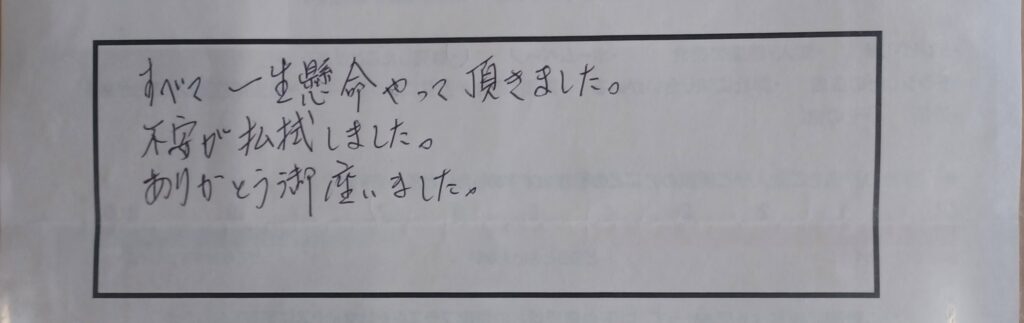 すべて一生懸命やって頂きました。
不安が払拭しました。
ありがとう御座いました。